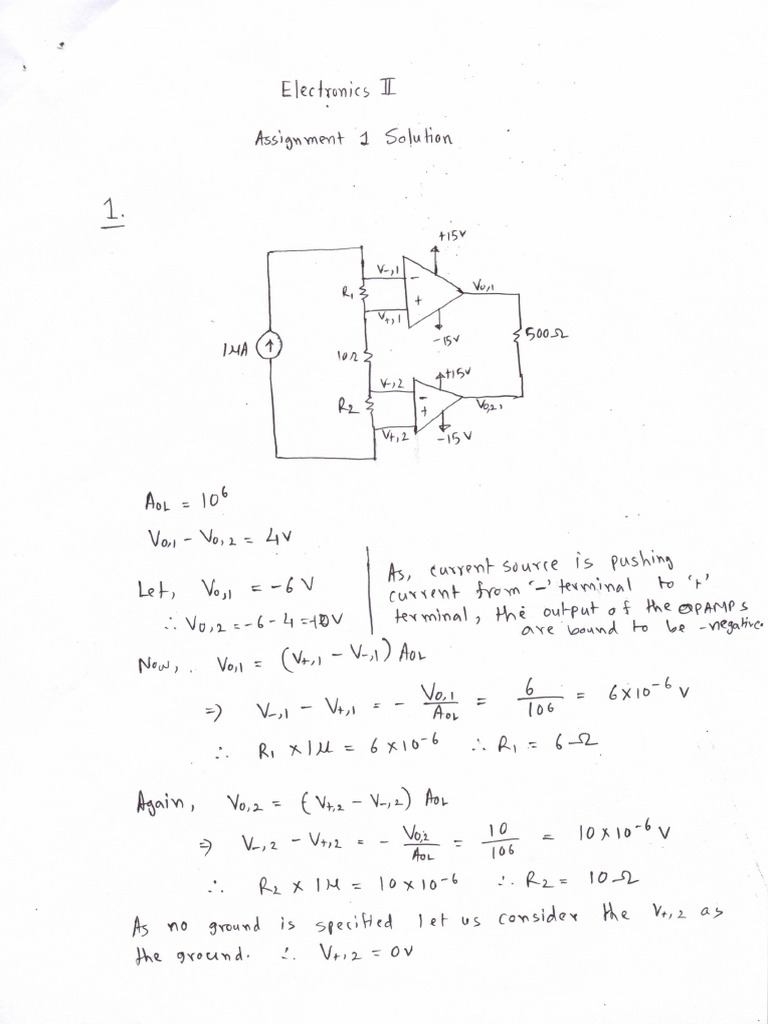 Electronics II
Assignment 1 Solution
1.
+15V
V-,1
-
V0,1
R1
+
V+,1
-15V
500Ω
1MA
10Ω
+15V
V-,2
-
R2
+
V0,2,
V+,2
-15V
AOL = 10^6
V0,1 - V0,2 = 4V
Let, V0,1 = -6V
∴ V0,2 = -6 - 4 = -10V
As, current source is pushing
current from '-' terminal to '+'
terminal, the output of the OPAMPs
are bound to be -negative.
Now, . V0,1 = (V+,1 - V-,1) AOL
⇒ V-,1 - V+,1 = - V0,1/AOL = 6/10^6 = 6×10^-6 V
∴ R1 × 1μ = 6×10^-6 ∴ R1 = 6Ω
Again, V0,2 = (V+,2 - V-,2) AOL
⇒ V-,2 - V+,2 = - V0,2/AOL = 10/10^6 = 10×10^-6 V
∴ R2 × 1μ = 10×10^-6 ∴ R2 = 10Ω
As no ground is specified let us consider the V+,2 as
the ground. ∴ V+,2 = 0V